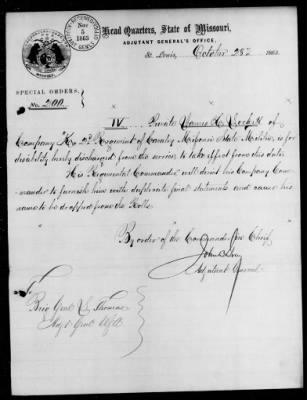 Head Quarters, State of Missouri,
ADJUTANT GENERAL'S OFFICE,
St. Louis, October 28th 1863.
NOV
5
1863
SPECIAL ORDERS,
No. 200
IV Private H. of
Company "K" 2d Regiment of Cavalry Missouri State Militia, is for
disability hereby discharged from the service to take effect from this date
His Regimental Commander will direct his Company Com-
mander to furnish him with duplicate final statements and cause his
name to be dropped from the Rolls.
By order of the Commander in Chief,
John
Adjutant General.
To
Brig Genl L. Thomas
Adjt Genl USA